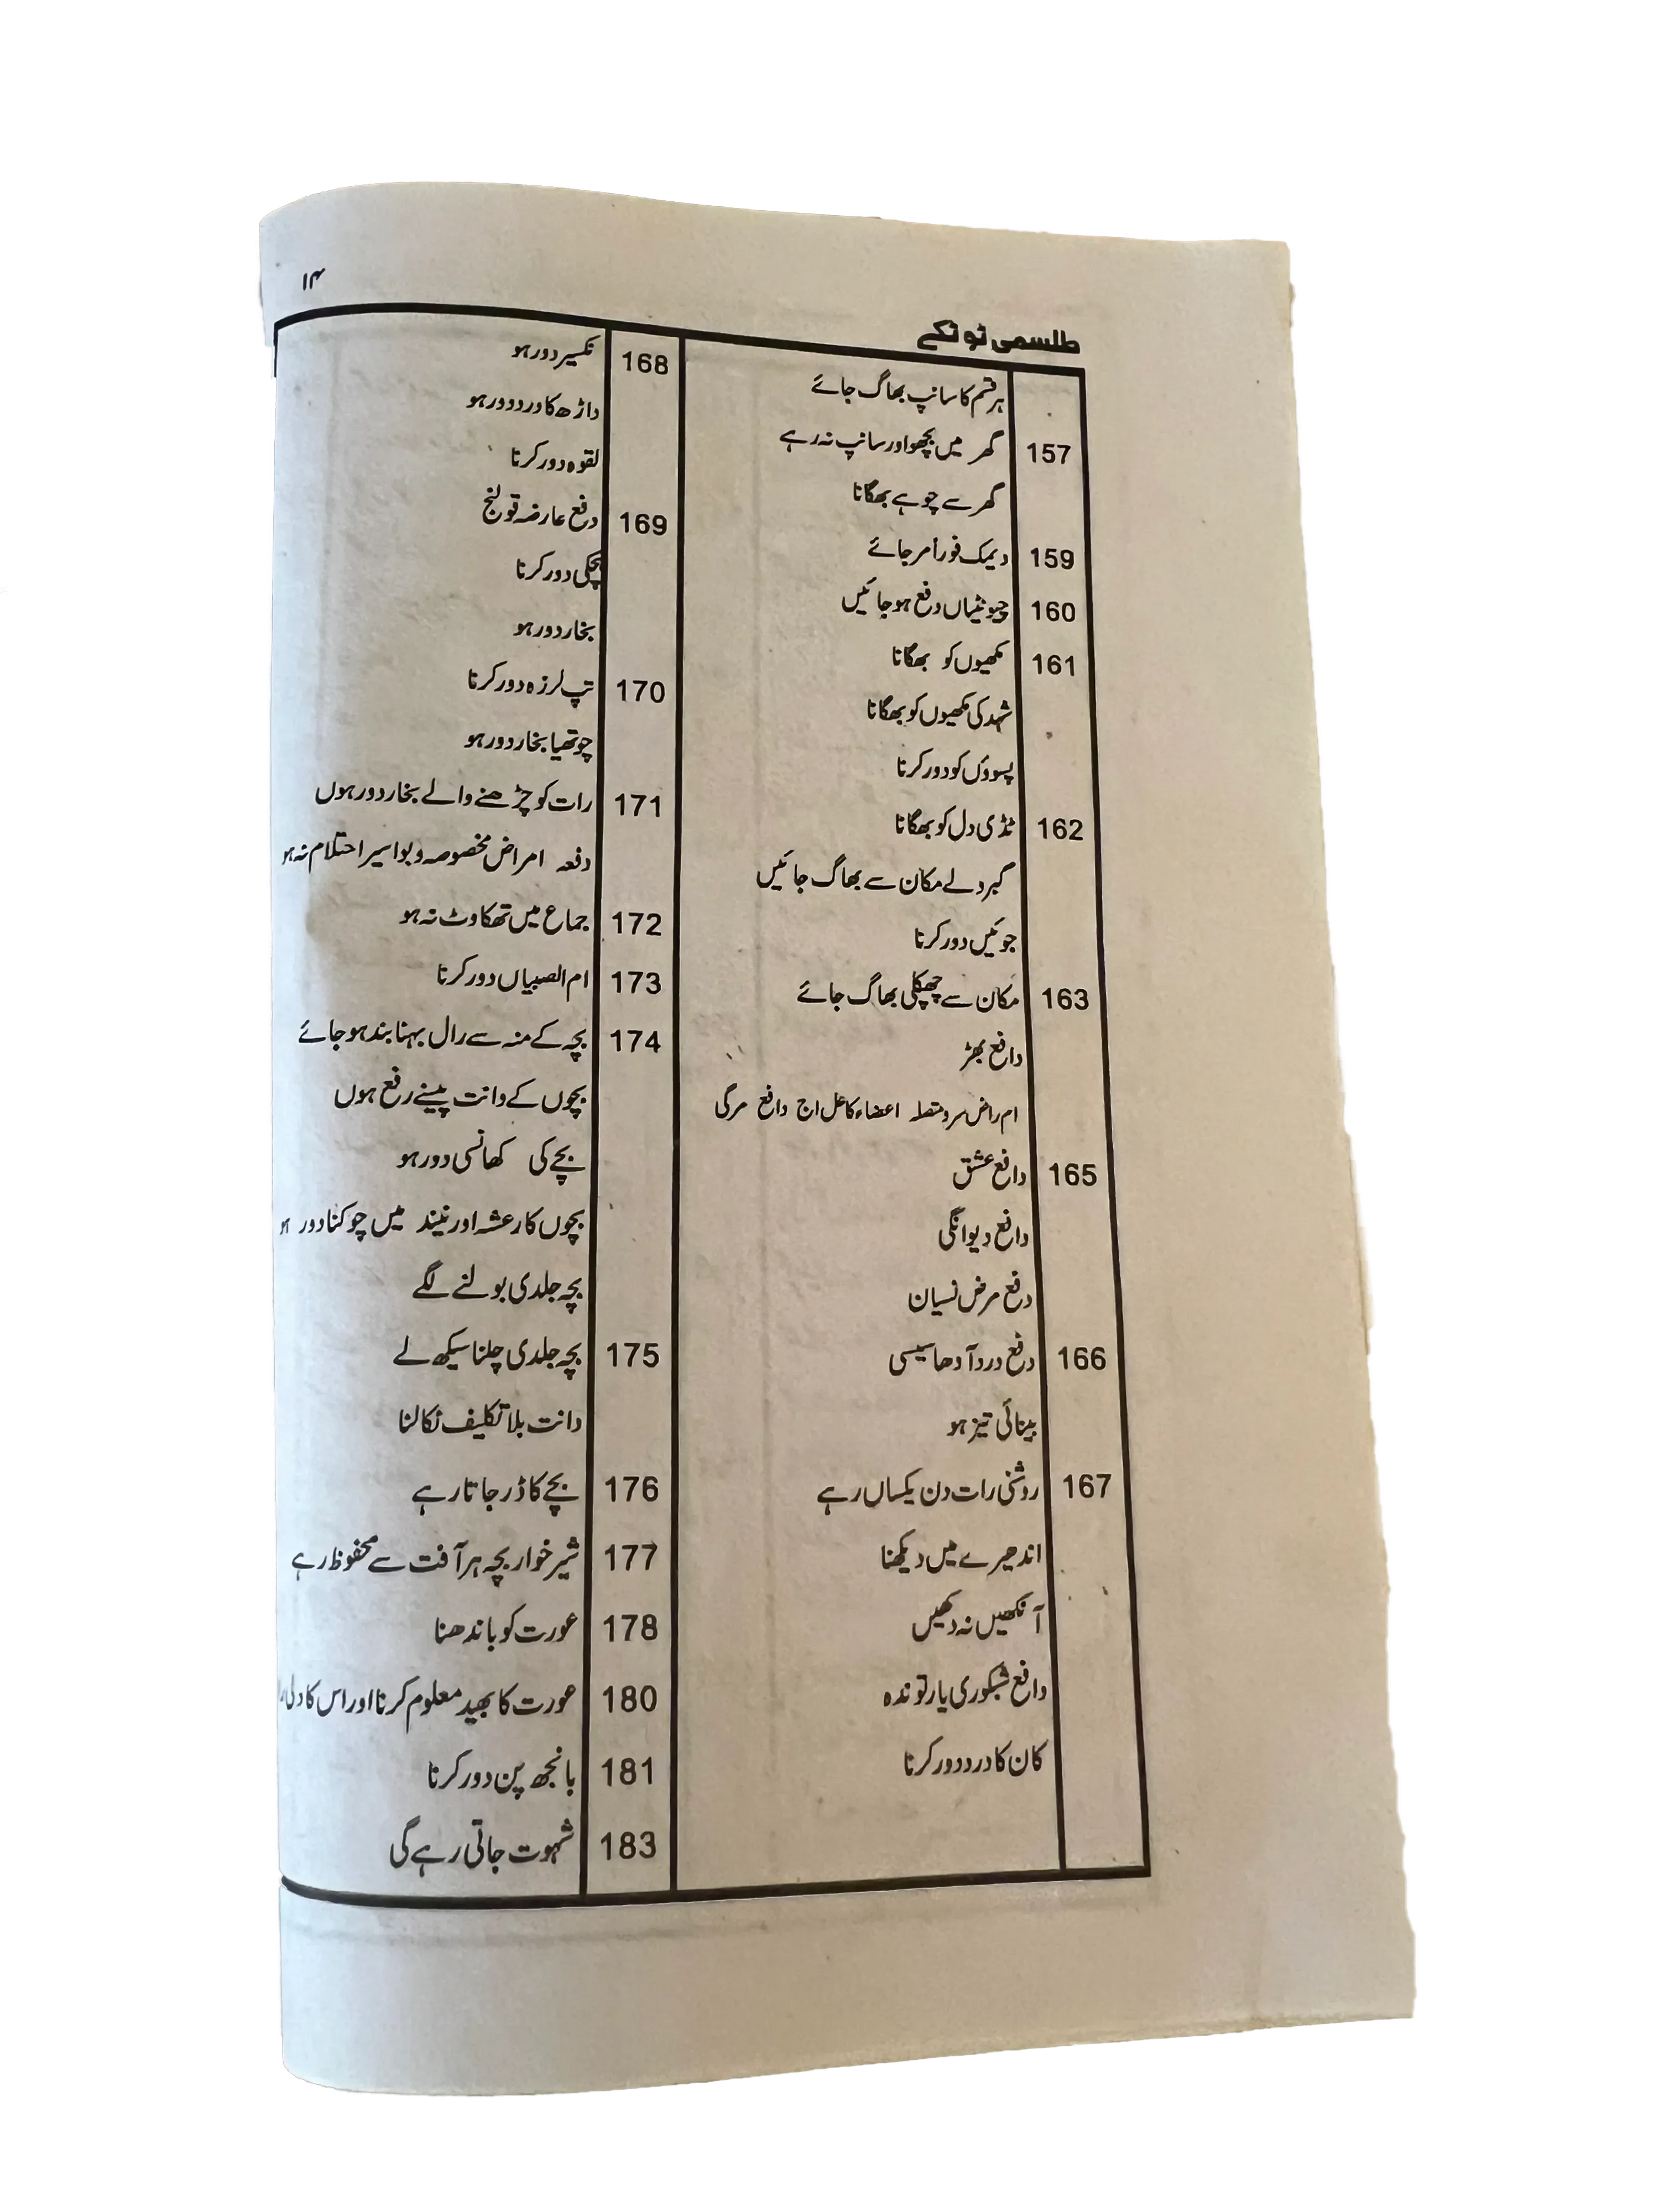 ۱۴
طلسمی ٹوٹکے
ہر قسم کا سانپ بھاگ جائے
157 گھر میں بچھو اور سانپ نہ رہے
گھر سے چوہے بھگانا
159 دیمک فوراً مر جائے
160 چیونٹیاں دفع ہو جائیں
161 مکھیوں کو بھگانا
شہد کی مکھیوں کو بھگانا
پسوؤں کو دور کرنا
162 ٹڈی دل کو بھگانا
گبردلے مکان سے بھاگ جائیں
جوئیں دور کرنا
163 مکان سے چھپکلی بھاگ جائے
دافع بھڑ
ام راض سر و متصلہ اعضاء کا عل اج دافع مرگی
165 دافع عشق
دافع دیوانگی
دفع مرض نسیان
166 دفع درد آدھا سیسی
بینائی تیز ہو
167 روشنی رات دن یکساں رہے
اندھیرے میں دیکھنا
آنکھیں نہ دکھیں
دافع شبکوری یا رتوندہ
کان کا درد دور کرنا
168 نکسیر دور ہو
داڑھ کا درد دور ہو
لقوہ دور کرنا
169 دفع عارضہ قولنج
ہچکی دور کرنا
بخار دور ہو
170 تپ لرزہ دور کرنا
چوتھیا بخار دور ہو
171 رات کو چڑھنے والے بخار دور ہوں
دفعہ امراض مخصوصہ و بواسیر احتلام نہ ہو
172 جماع میں تھکاوٹ نہ ہو
173 ام الصبیاں دور کرنا
174 بچہ کے منہ سے رال بہنا بند ہو جائے
بچوں کے دانت پیسنے رفع ہوں
بچے کی کھانسی دور ہو
بچوں کا رعشہ اور نیند میں چوکنا دور ہو
بچہ جلدی بولنے لگے
175 بچہ جلدی چلنا سیکھ لے
دانت بلا تکلیف نکالنا
176 بچے کا ڈر جاتا رہے
177 شیر خوار بچہ ہر آفت سے محفوظ رہے
178 عورت کو باندھنا
180 عورت کا بھید معلوم کرنا اور اس کا دلی
181 بانجھ پن دور کرنا
183 شہوت جاتی رہے گی